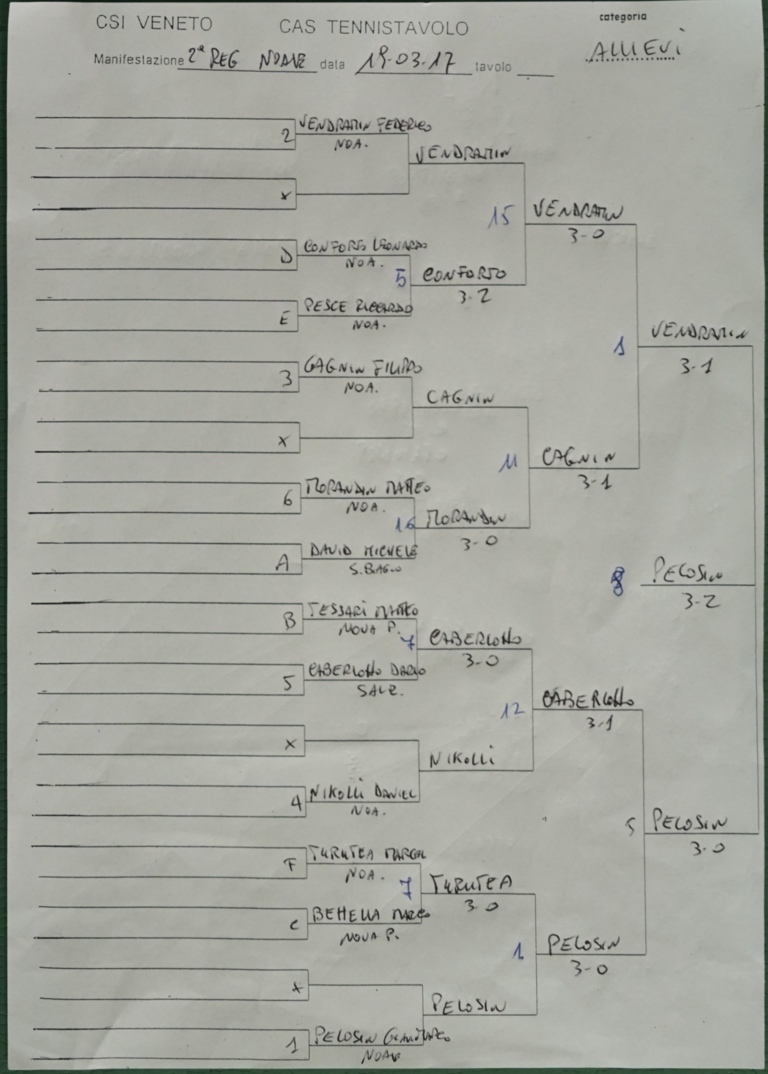 CSI VENETO CAS TENNISTAVOLO categoria
Manifestazione 2ª REG NOALE data 19-03-17 tavolo
ALLIEVI
2 VENDRAMIN FEDERICO
NOA.
VENDRAMIN
X
15 VENDRAMIN
3-0
D CONFORTO LEONARDO
NOA.
5 CONFORTO
3-2
E PESCE RICCARDO
NOA.
1 VENDRAMIN
3-1
3 CAGNIN FILIPPO
NOA.
CAGNIN
X
11 CAGNIN
3-1
6 MORANDIN MATTEO
NOA.
16 MORANDIN
3-0
A DAVID MICHELE
S.BAGIO
8 PELOSIN
3-2
B TESSARI MATTEO
NOVA P.
7 CABERLOTTO
3-0
5 CABERLOTTO DARIO
SALZ.
12 CABERLOTTO
3-1
X
NIKOLLI
4 NIKOLLI DANIEL
NOA.
5 PELOSIN
3-0
F TURUTEA MARCEL
NOA.
7 TURUTEA
3-0
C BEHELLA MARCO
NOVA P.
1 PELOSIN
3-0
X
PELOSIN
1 PELOSIN
NOALE